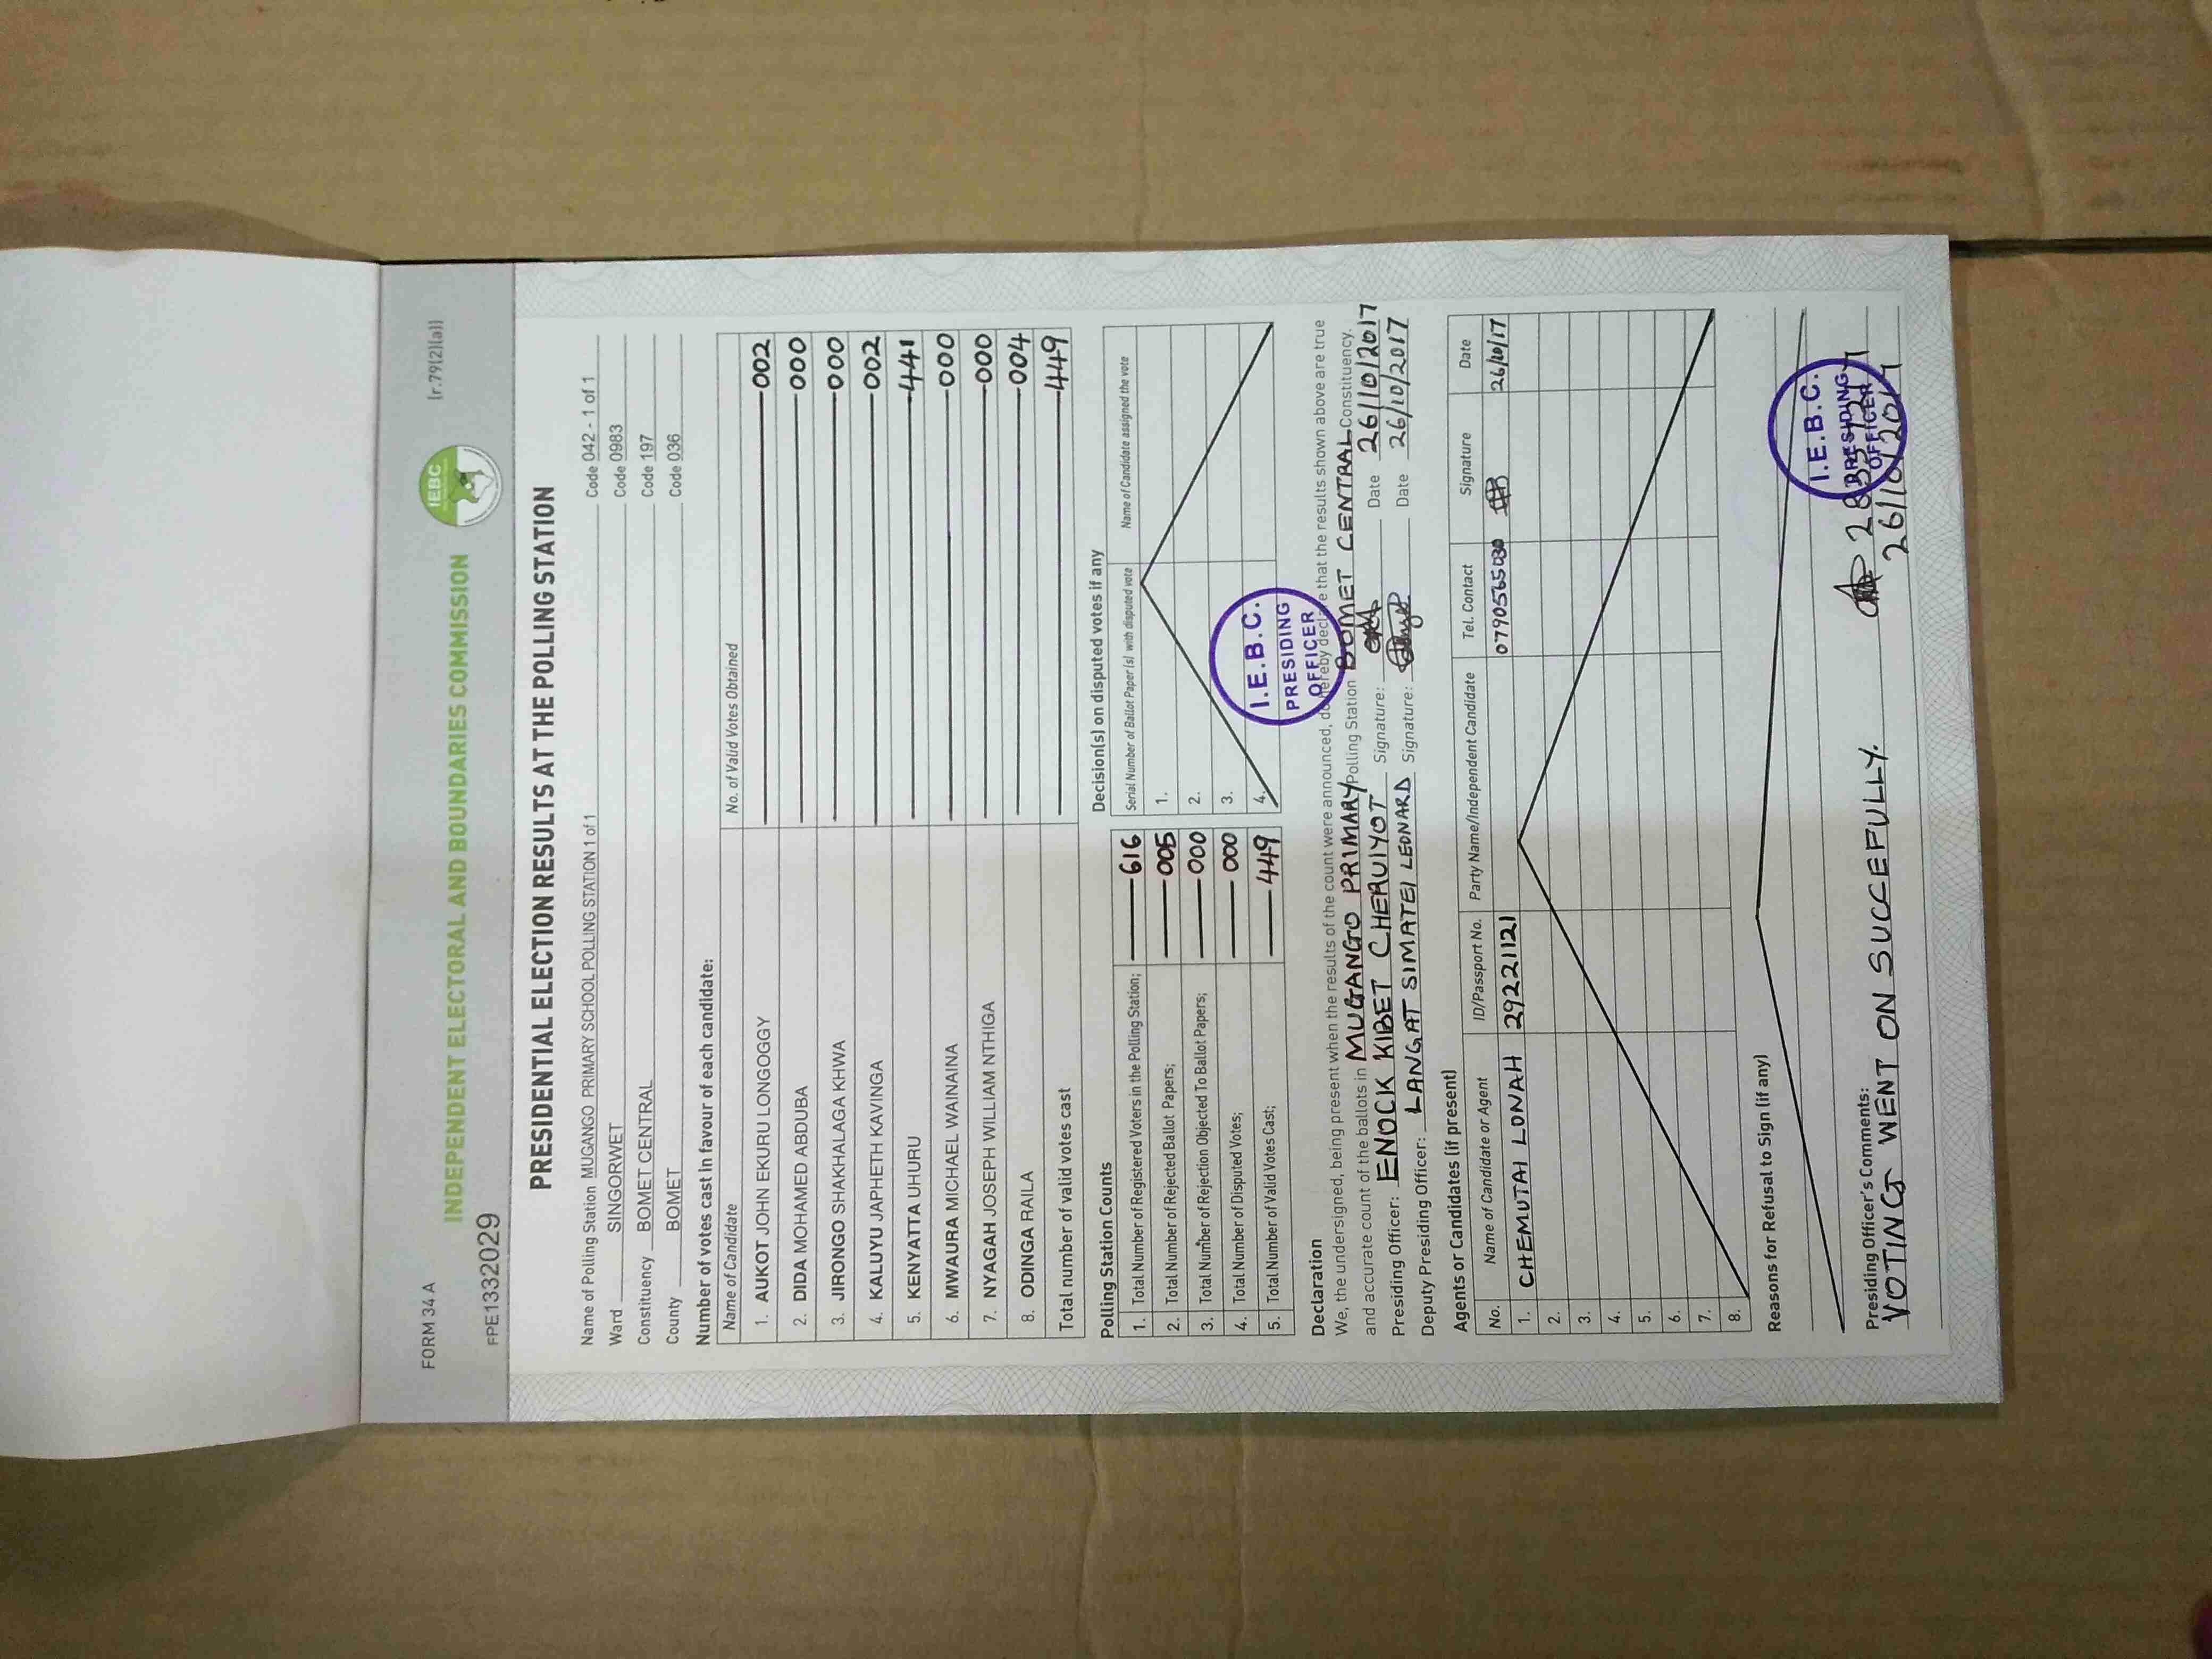 FORM 34 A
[r.79(2)(a)]
INDEPENDENT ELECTORAL AND BOUNDARIES COMMISSION
IEBC
FPE1332029
PRESIDENTIAL ELECTION RESULTS AT THE POLLING STATION
Name of Polling Station MUGANGO PRIMARY SCHOOL POLLING STATION 1 of 1 Code 042 - 1 of 1
Ward SINGORWET Code 0983
Constituency BOMET CENTRAL Code 197
County BOMET Code 036
Number of votes cast in favour of each candidate:
Name of Candidate No. of Valid Votes Obtained
1. AUKOT JOHN EKURU LONGOGGY 002
2. DIDA MOHAMED ABDUBA 000
3. JIRONGO SHAKHALAGA KHWA 000
4. KALUYU JAPHETH KAVINGA 002
5. KENYATTA UHURU 441
6. MWAURA MICHAEL WAINAINA 000
7. NYAGAH JOSEPH WILLIAM NTHIGA 000
8. ODINGA RAILA 004
Total number of valid votes cast 449
Polling Station Counts
1. Total Number of Registered Voters in the Polling Station; 616
2. Total Number of Rejected Ballot Papers; 005
3. Total Number of Rejection Objected To Ballot Papers; 000
4. Total Number of Disputed Votes; 000
5. Total Number of Valid Votes Cast; 449
Decision(s) on disputed votes if any
Serial Number of Ballot Paper(s) with disputed vote Name of Candidate assigned the vote
1.
2.
3.
4.
I.E.B.C.
PRESIDING
OFFICER
Declaration
We, the undersigned, being present when the results of the count were announced, do hereby declare that the results shown above are true
and accurate count of the ballots in MUGANGO PRIMARY Polling Station BOMET CENTRAL Constituency.
Presiding Officer: ENOCK KIBET CHERUIYOT Signature: Date 26/10/2017
Deputy Presiding Officer: LANGAT SIMATEI LEONARD Signature: Date 26/10/2017
Agents or Candidates (if present)
No. Name of Candidate or Agent ID/Passport No. Party Name/Independent Candidate Tel. Contact Signature Date
1. CHEMUTAI LONAH 29221121 0790565030 26/10/17
2.
3.
4.
5.
6.
7.
8.
Reasons for Refusal to Sign (if any)
Presiding Officer's Comments:
VOTING WENT ON SUCCEFULLY.
I.E.B.C.
PRESIDING
OFFICER
26/10/2017